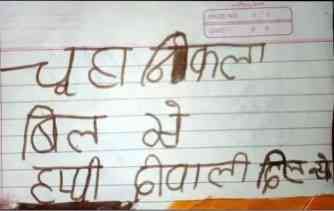 चूहा निकला
बिल से
हप्पी दीवाली दिल से